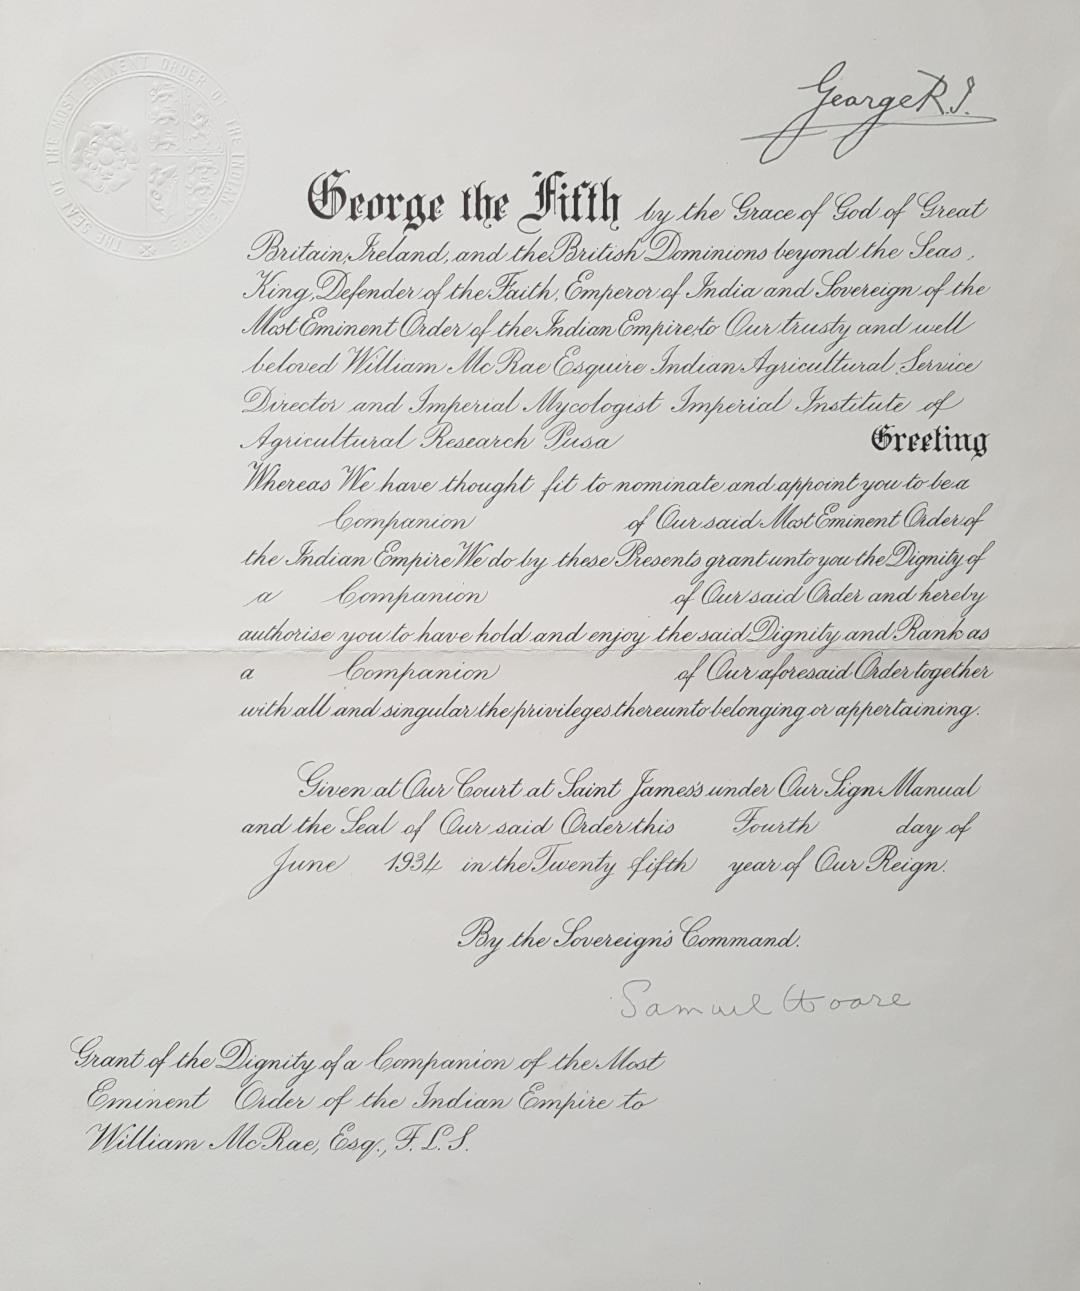 THE SEAL OF THE MOST EMINENT ORDER OF THE INDIAN EMPIRE
George R.I.
George the Fifth by the Grace of God of Great
Britain, Ireland, and the British Dominions beyond the Seas,
King, Defender of the Faith, Emperor of India and Sovereign of the
Most Eminent Order of the Indian Empire, to Our trusty and well
beloved William McRae Esquire Indian Agricultural Service
Director and Imperial Mycologist Imperial Institute of
Agricultural Research Pusa Greeting
Whereas We have thought fit to nominate and appoint you to be a
Companion of Our said Most Eminent Order of
the Indian Empire We do by these Presents grant unto you the Dignity of
a Companion of Our said Order and hereby
authorise you to have hold and enjoy the said Dignity and Rank as
a Companion of Our aforesaid Order together
with all and singular the privileges thereunto belonging or appertaining.
Given at Our Court at Saint James's under Our Sign Manual
and the Seal of Our said Order this Fourth day of
June 1934 in the Twenty fifth year of Our Reign.
By the Sovereign's Command.
Samuel Hoare
Grant of the Dignity of a Companion of the Most
Eminent Order of the Indian Empire to
William McRae, Esq., F.L.S.